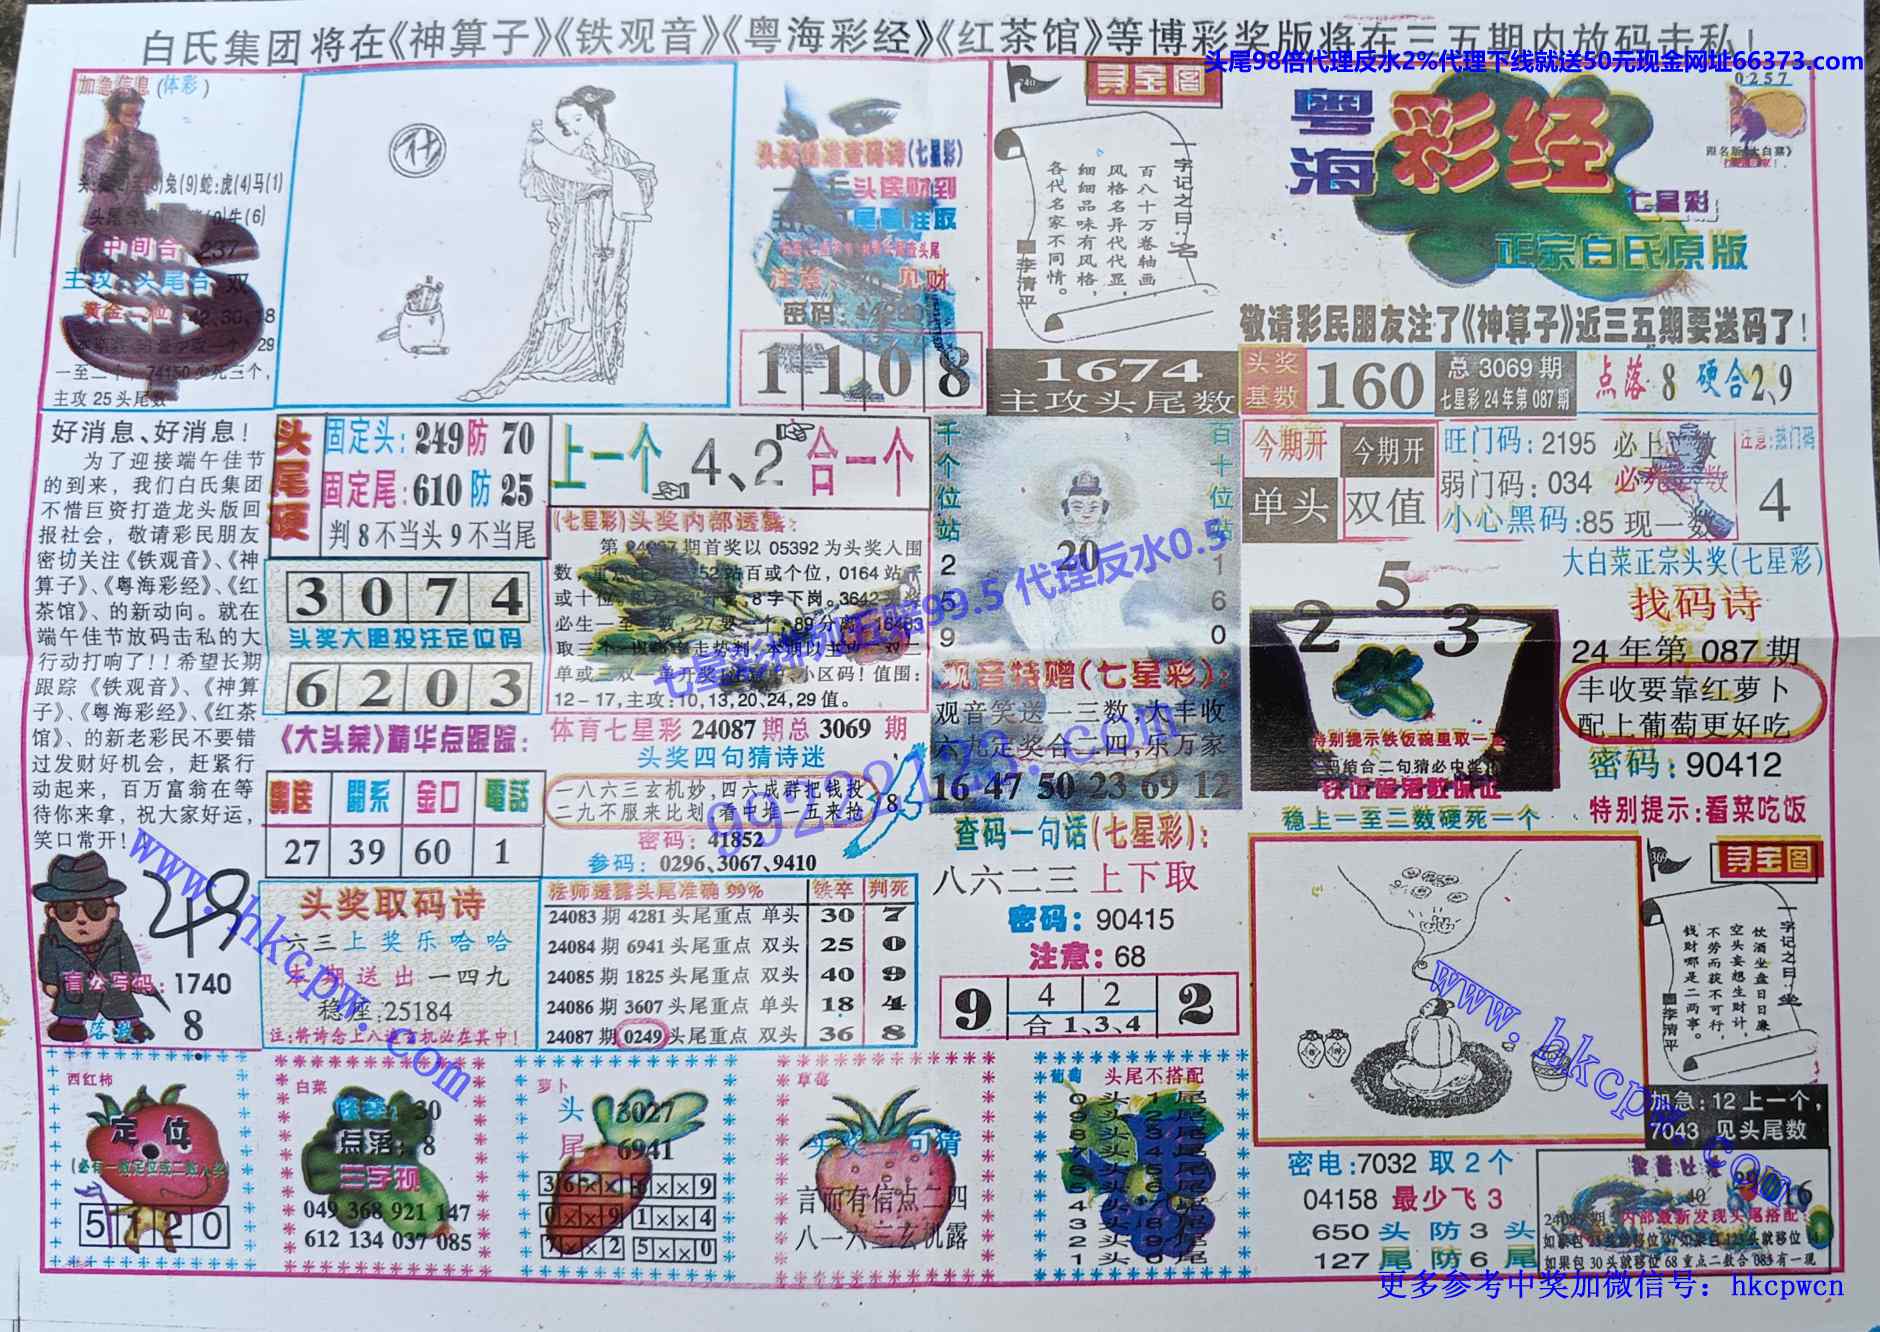 白氏集团将在《神算子》《铁观音》《粤海彩经》《红茶馆》等博彩奖版将在三五期内放码击私！
头尾98倍代理反水2%代理下线就送50元现金网址66373.com
加急信息(体彩)
中间合:237
主攻:头尾合 双
一至二个，74150少死三个，
主攻25头尾数
仕
头奖精准查码诗(七星彩)
头尾财到
密码:
1 1 0 8
寻宝图
一字记之曰:名
百八十万卷轴画，
风格名异代代显，
细细品味有风格，
各代名家不同情。
李清平
1674
主攻头尾数
0257
粤海彩经
七星彩
正宗白氏原版
敬请彩民朋友注了《神算子》近三五期要送码了！
头奖基数 160
总3069期
七星彩24年第087期
点落8 硬合2、9
好消息、好消息！
为了迎接端午佳节
的到来，我们白氏集团
不惜巨资打造龙头版回
报社会，敬请彩民朋友
密切关注《铁观音》、《神
算子》、《粤海彩经》、《红
茶馆》、的新动向。就在
端午佳节放码击私的大
行动打响了！！希望长期
跟踪《铁观音》、《神算
子》、《粤海彩经》、《红茶
馆》、的新老彩民不要错
过发财好机会，赶紧行
动起来，百万富翁在等
待你来拿，祝大家好运，
笑口常开！
头尾硬
固定头:249防70
固定尾:610防25
判8不当头9不当尾
上一个 4、2 合一个
3 0 7 4
头奖大胆投注定位码
6 2 0 3
《大头菜》精华点跟踪:
關系 金口 電話
27 39 60 1
(七星彩)头奖内部透露:
第24087期首奖以05392为头奖入围
12-17，主攻:10,13,20,24,29值。
体育七星彩24087期总3069期
头奖四句猜诗迷
一八六三玄机妙，四六成群把钱投
二九不服来比划，看中堆一五来抢
8
密码:41852
参码:0296,3067,9410
千个位站 2 5 9
百十位站 1 6 0
20
观音特赠(七星彩):
观音笑送一三数，大丰收
六九定奖合二四，乐万家
16 47 50 23 69 12
查码一句话(七星彩):
八六二三上下取
密码:90415
注意:68
9 4 2 2
合1、3、4
今期开 单头
今期开 双值
旺门码:2195 必上一数
弱门码:034 必死一数
小心黑码:85 现一数
注意:热门码
4
大白菜正宗头奖(七星彩)
找码诗
24年第087期
丰收要靠红萝卜
配上葡萄更好吃
密码:90412
特别提示:看菜吃饭
2 5 3
稳上一至二数硬死一个
249
盲公写码:1740
落数 8
头奖取码诗
六三上奖乐哈哈
本期送出一四九
稳座:25184
注:将诗念上八遍玄机必在其中！
法师透露头尾准确99% 铁卒 判死
24083期4281头尾重点 单头 30 7
24084期6941头尾重点 双头 25 0
24085期1825头尾重点 双头 40 9
24086期3607头尾重点 单头 18 4
24087期0249头尾重点 双头 36 8
369
寻宝图
一字记之曰:坐
饮酒坐盘日日廉，
空头妄想生财计，
不劳而获不可行，
钱财哪是二两事。
李清平
加急:12上一个，
7043 见头尾数
西红柿
定位
5 1 2 0
白菜
铁卒:30
点落:8
三字现
049 368 921 147
612 134 037 085
萝卜
头 3027
尾 6941
草莓
头奖二句猜
言而有信点二四
八一六三玄机露
葡萄
头尾不搭配
0头1尾
9头2尾
8头3尾
7头4尾
6头5尾
5头6尾
4头7尾
3头8尾
2头9尾
1头0尾
密电:7032取2个
04158最少飞3
650头防3头
127尾防6尾
内部最新发现头尾搭配:
如果包30头就移位68重点二数合083有一现
七星彩排列五赔99.5 代理反水0.5
90222123.com
www.hkcpw.com
www.hkcpw.com
更多参考中奖加微信号：hkcpwcn